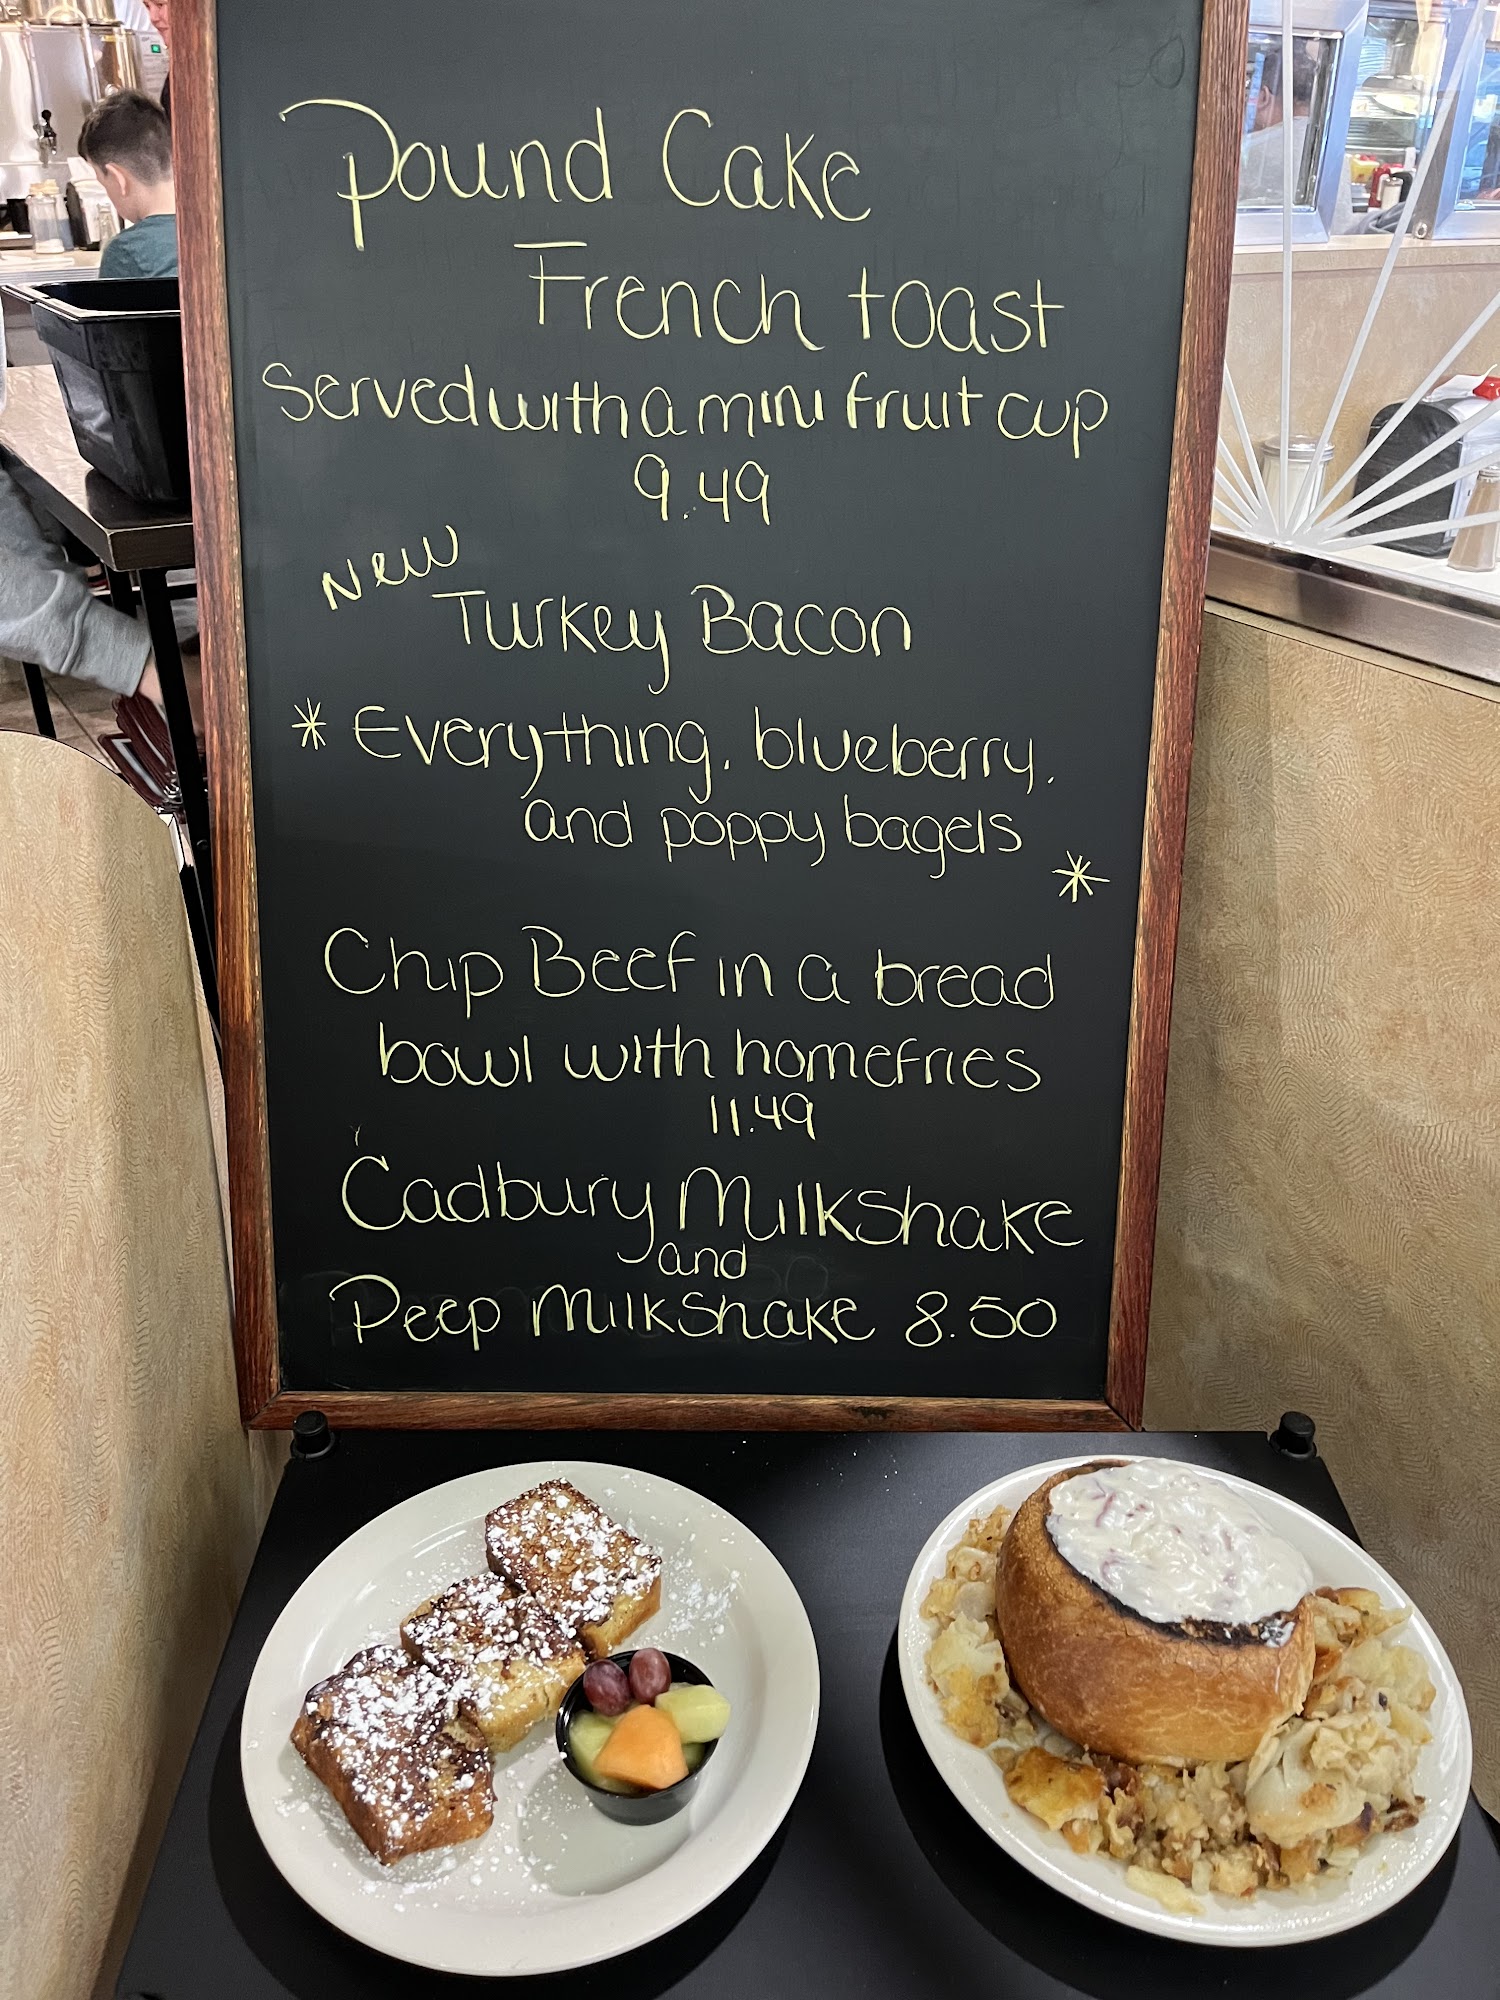 Pound Cake
French toast
Served with a mini fruit cup
9.49
New
Turkey Bacon
* Everything, blueberry,
and poppy bagels
*
Chip Beef in a bread
bowl with homefries
11.49
Cadbury Milkshake
and
Peep Milkshake 8.50